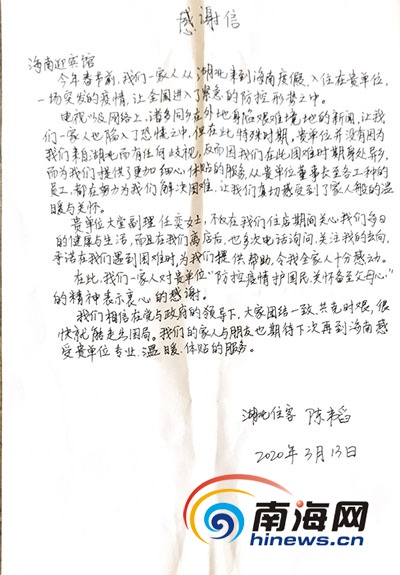 感谢信
海南迎宾馆
今年春节前,我们一家人从湖北来到海南度假,入住在贵单位,
一场突发的疫情,让全国进入了紧急的防控形势之中。
电视以及网络上,诸多同乡在外地身陷艰难境地的新闻,让我
们一家人也陷入了恐慌之中,但在此特殊时期,贵单位并没有因为
我们来自湖北而有任何歧视,反而因我们在此困难时期身处异乡,
而为我们提供了更加细心、体贴的服务,从贵单位董事长至各工种的
员工,都在努力为我们解决困难,让我们真切感受到了家人般的温
暖与关怀。
贵单位大堂副理任奕女士,不仅在我们住店期间关心我们每日
的健康与生活,而且在我们离店后,也多次电话询问,关注我的去向,
承诺在我们遇到困难时,为我们提供帮助,令我全家人十分感动。
在此,我们一家人对贵单位“防控疫情护国民,关怀备至父母心”
的精神表示衷心的感谢。
我们相信在党与政府的领导下,大家团结一致、共克时艰,很
快就能走出困局。我们的家人与朋友也期待下次再到海南感
受贵单位专业、温暖、体贴的服务。
湖北住客 陈
2020年3月13日
南海网
hinews.cn